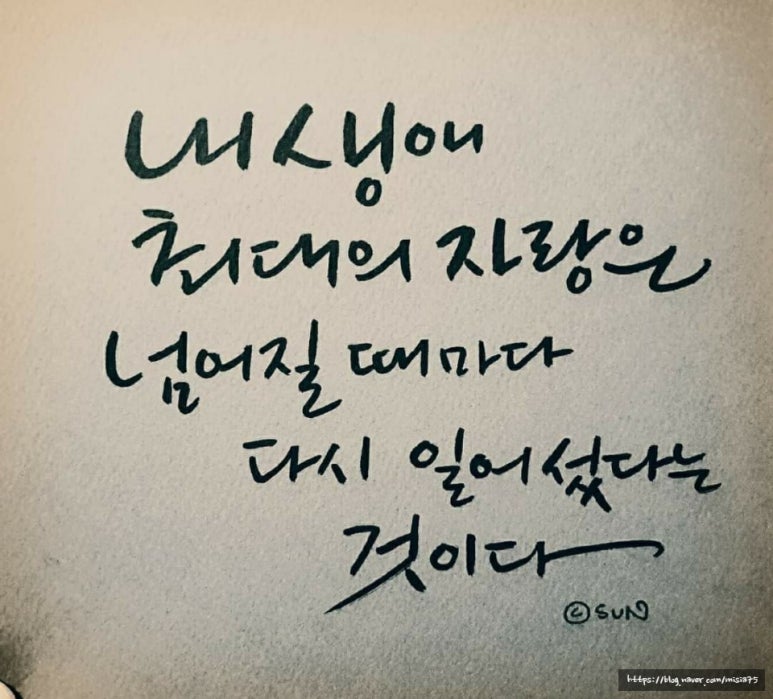 내 생애
최대의 자랑은
넘어질 때마다
다시 일어섰다는
것이다
©SUN
https://blog.naver.com/misia75